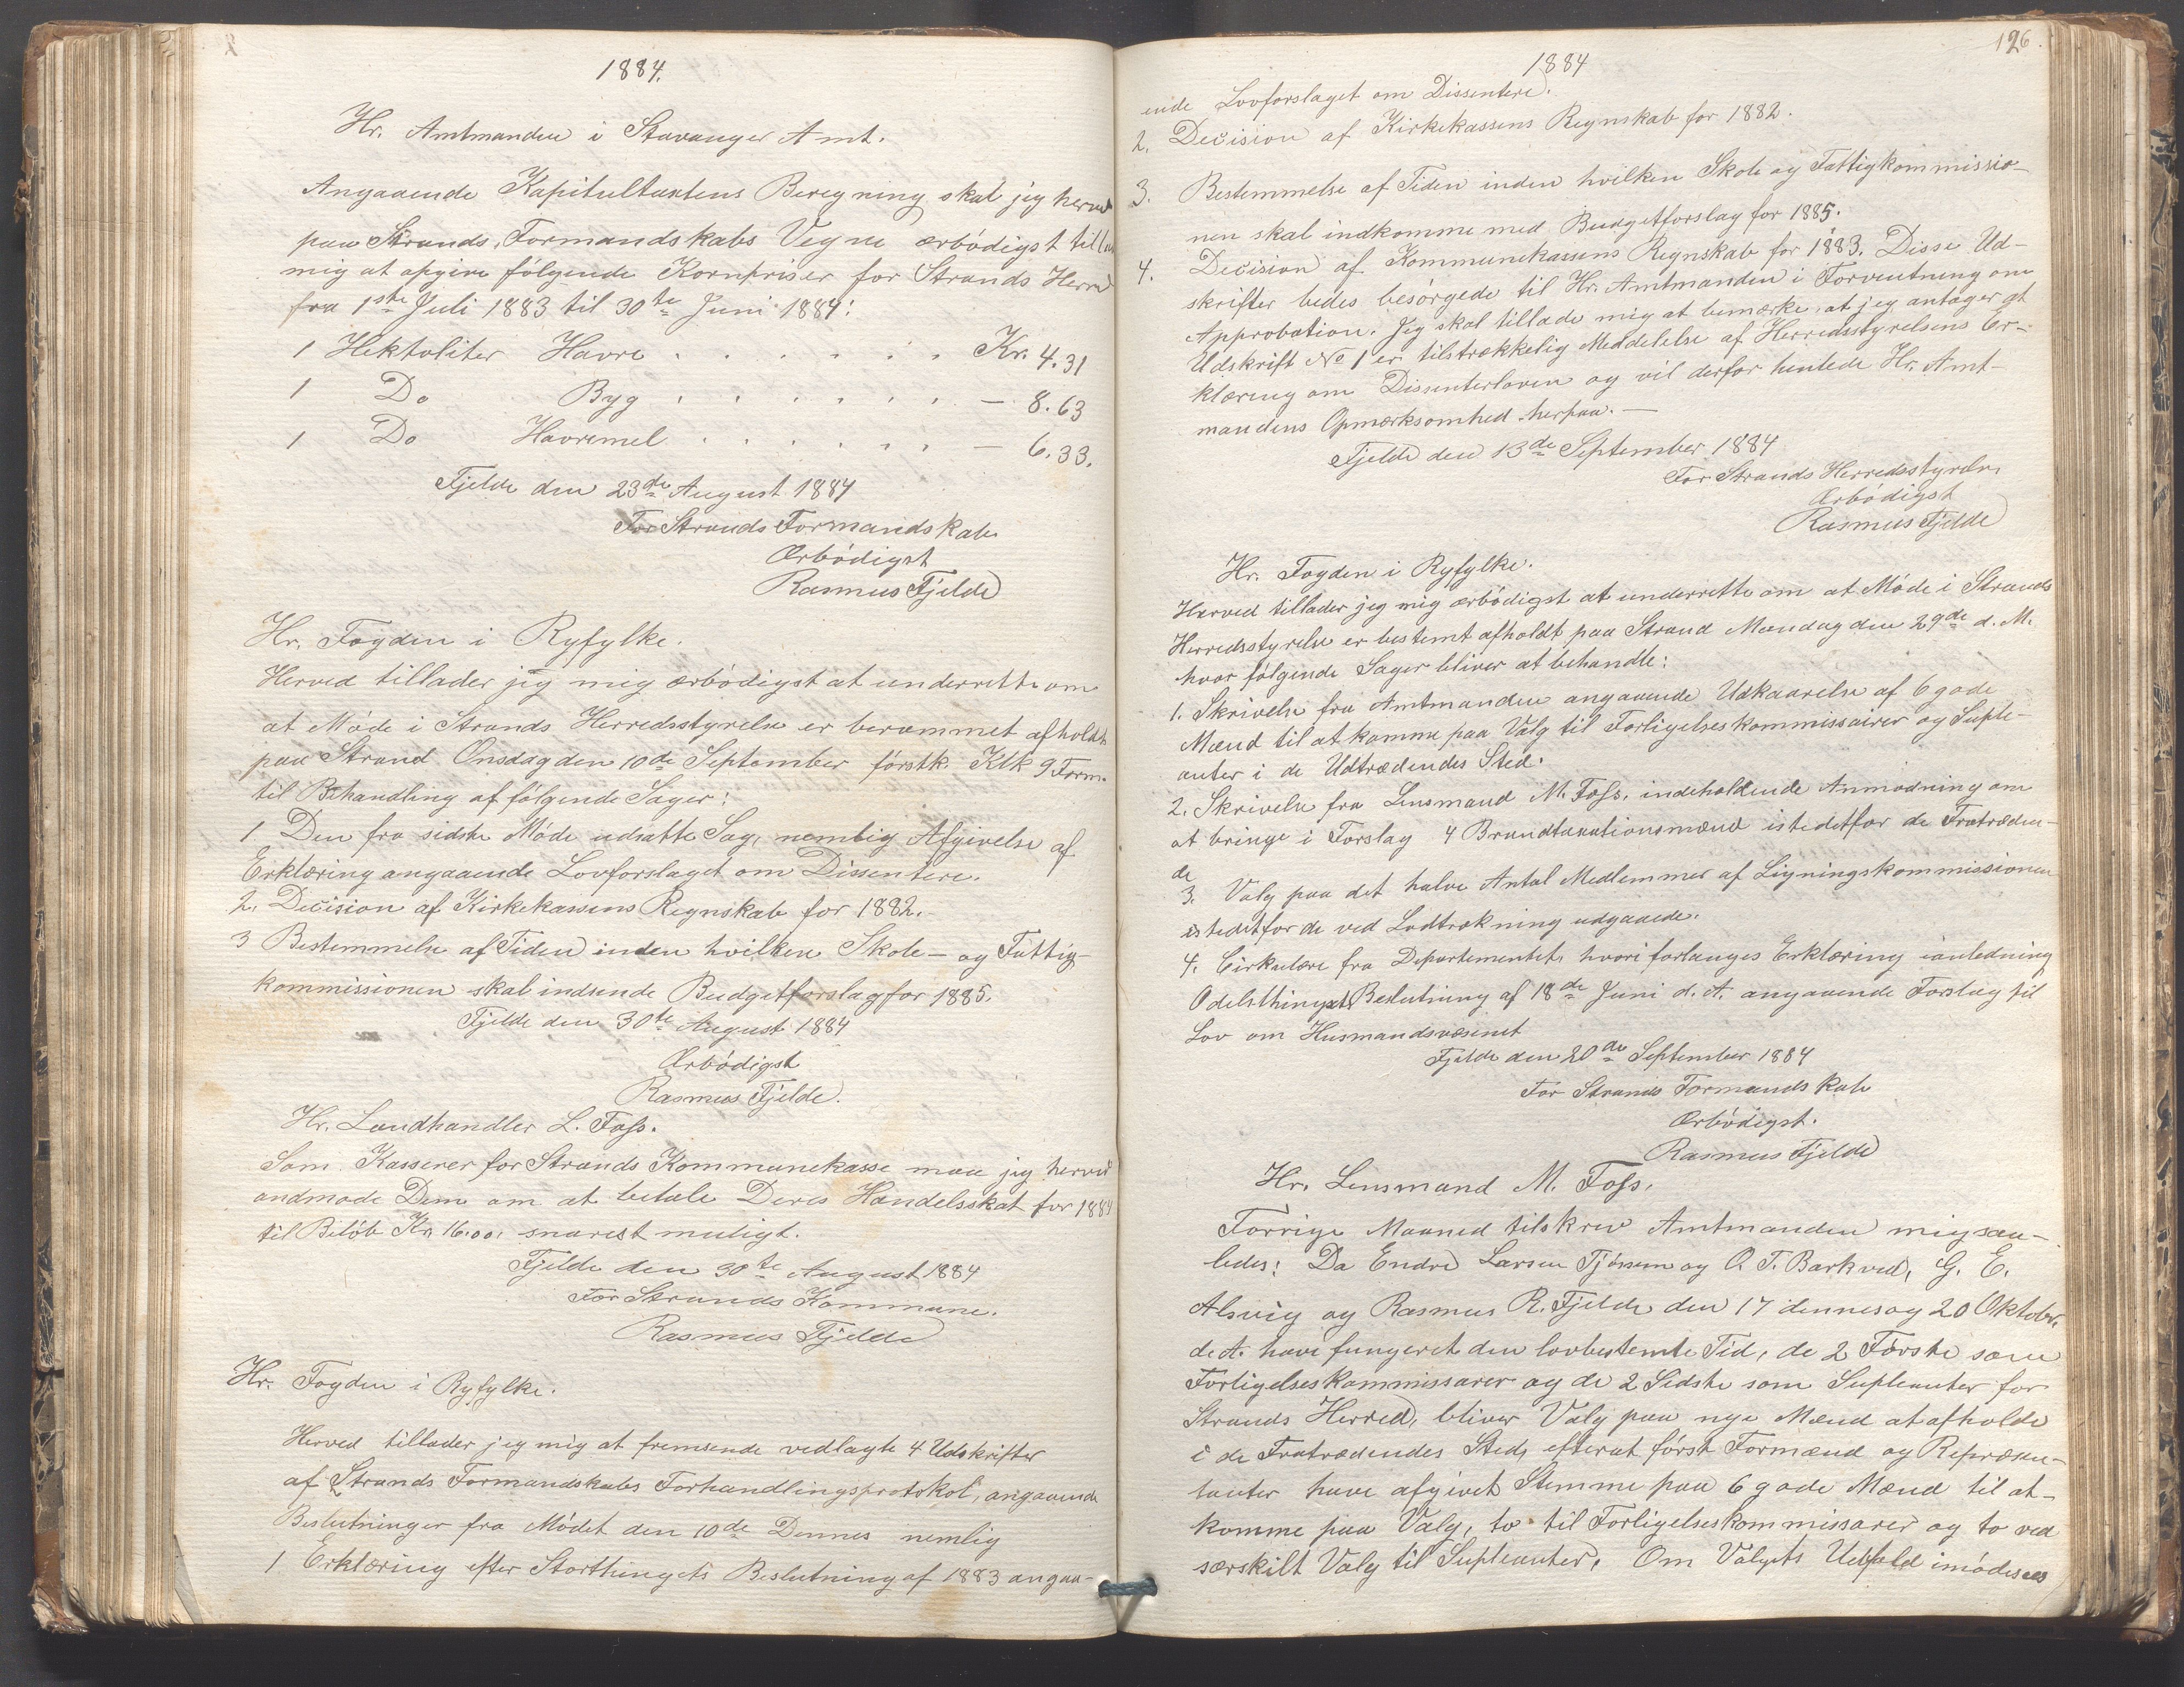 1884.
Hr. Amtmanden i Stavanger Amt.
Angaaende Kapitultaxtens Beregning skal jeg herved
paa Strands Formandskabs Vegne ærbödigst tillade
mig at opgive følgende Kornpriser for Strands Herred
fra 1ste Juli 1883 til 30te Juni 1884:
1 Hektoliter Havre . . . . . . Kr. 4.31
1 Do Byg . . . . . . — 8.63
1 Do Havremel . . . . . . — 6.33.
Fjelde den 23de August 1884
For Strands Formandskab
Ærbödigst
Rasmus Fjelde
Hr. Fogden i Ryfylke.
Herved tillader jeg mig ærbödigst at underrette om
at Möde i Strands Herredsstyrelse er berammet afholdt
paa Strand Onsdag den 10de September förstk. Klk 9 Form.
til Behandling af følgende Sager:
1 Den fra sidste Möde udsatte Sag, nemlig Afgivelse af
Erklæring angaaende Lovforslaget om Dissentere.
2. Decision af Kirkekassens Regnskab for 1882.
3 Bestemmelse af Tiden inden hvilken Skole- og Fattig-
kommissionen skal indsende Budgetforslag for 1885.
Fjelde den 30te August 1884
Ærbödigst
Rasmus Fjelde.
Hr. Landhandler L. Foss.
Som Kasserer for Strands Kommunekasse maa jeg herved
andmode Dem om at betale Deres Handelsskat for 1884
til Belöb Kr. 16.00, snarest muligt.
Fjelde den 30te August 1884
For Strands Kommune.
Rasmus Fjelde
Hr. Fogden i Ryfylke.
Herved tillader jeg mig at fremsende vedlagte 4 Udskrifter
af Strands Formandskabs Forhandlingsprotokol, angaaende
Beslutninger fra Mödet den 10de Dennes nemlig
1 Erklæring efter Storthingets Beslutning af 1883 angaa-
126.
1884
ende Lovforslaget om Dissentere.
2. Decision af Kirkekassens Regnskab for 1882.
3. Bestemmelse af Tiden inden hvilken Skole og Fattigkommissio-
nen skal indkomme med Budgetforslag for 1885.
4. Decision af Kommunekassens Regnskab for 1883. Disse Ud-
skrifter bedes besörgede til Hr. Amtmanden i Forventning om
Approbation. Jeg skal tillade mig at bemærke, at jeg antager at
Udskrift No 1 er tilstrækkelig Meddelelse af Herredsstyrelsens Er-
klæring om Dissenterloven og vil derfor henlede Hr. Amt-
mandens Opmærksomhed herpaa. —
Fjelde den 13de September 1884
For Strands Herredsstyrelse
Ærbödigst
Rasmus Fjelde
Hr. Fogden i Ryfylke.
Herved tillader jeg mig ærbödigst at underrette om at Möde i Strands
Herredsstyrelse er bestemt afholdt paa Strand Mandag den 29de d. M.
hvor følgende Sager bliver at behandle:
1. Skrivelse fra Amtmanden angaaende Udkaarelse af 6 gode
Mænd til at komme paa Valg til Forligelseskommissairer og Suple-
anter i de Udtrædendes Sted.
2. Skrivelse fra Lensmand M. Foss, indeholdende Anmodning om
at bringe i Forslag 4 Brandtaxationsmænd istedetfor de Fratræden-
de
3. Valg paa det halve Antal Medlemmer af Ligningskommissionen
istedetfor de ved Lodtrækning udgaaede.
4. Cirkulære fra Departementet, hvori forlanges Erklæring ianledning
Odelsthingets Beslutning af 18de Juni d. A. angaaende Forslag til
Lov om Husmandsvæsenet
Fjelde den 20de September 1884
For Strands Formandskab
Ærbödigst.
Rasmus Fjelde
Hr. Lensmand M. Foss.
Forrige Maaned tilskrev Amtmanden mig saa-
ledes: Da Endre Larsen Tjössem og O. T. Barkved, G. E.
Alsvig og Rasmus R. Fjelde den 17 dennes og 20 Oktober
d. A. have fungeret den lovbestemte Tid, de 2 Förste som
Forligelseskommissarer og de 2 Sidste som Supleanter for
Strands Herred, bliver Valg paa nye Mænd at afholde
i de Fratrædendes Sted, efterat först Formænd og Repræsen-
tanter have afgivet Stemme paa 6 gode Mænd til at
komme paa Valg, to til Forligelseskommissarer og to ved
særskilt Valg til Supleanter. Om Valgets Udfald imödesees